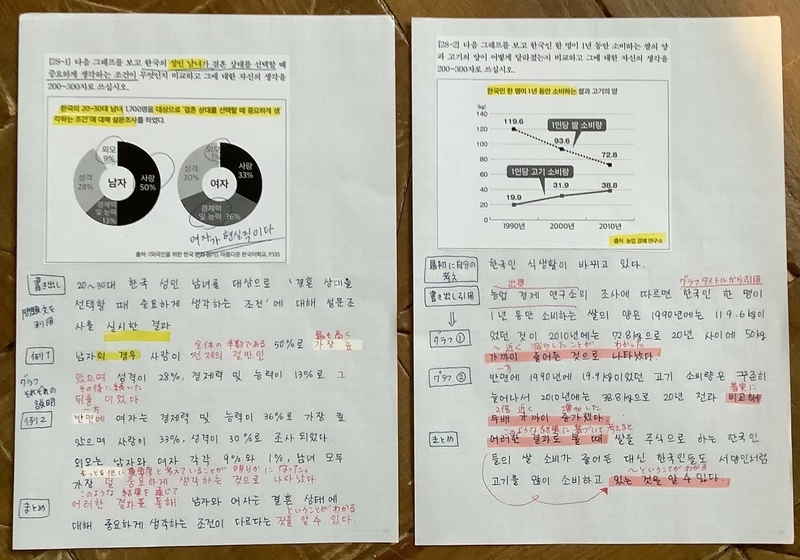 [28-1] 다음 그래프를 보고 한국의 성인 남녀가 결혼 상대를 선택할 때
중요하게 생각하는 조건이 무엇인지 비교하고 그에 대한 자신의 생각을
200~300자로 쓰십시오.
한국의 20~30대 남녀 1,700명을 대상으로 '결혼 상대를 선택할 때 중요하게 생
각하는 조건'에 대해 설문조사를 하였다.
외모
9%
성격
28%
남자
사랑
50%
경제력
및 능력
13%
외모
1%
성격
30%
여자
사랑
33%
경제력
및 능력 36%
여자가 현실적이다
출처: <외국인을 위한 한국 문화 읽기>, 아름다운 한국어학교, P.135
書き出し
問題文を
利用
20~30대 한국 성인 남녀를 대상으로 '결혼 상대를
선택할 때 중요하게 생각하는 조건'에 대해 설문조
사를 실시한 결과
全体の半数である
最も高く
例1
남자의 경우 사랑이 전체의 절반인 50%로 가장 높
グラフ
それぞれの
説明
았으며 성격이 28%, 경제력 및 능력이 13%로 그
その後に続いた
뒤를 이었다.
一方
例2
반면에 여자는 경제력 및 능력이 36%로 가장 높
았으며 사랑이 33%, 성격이 30%로 조사되었다.
외모는 남자와 여자 각각 9%와 1%, 남녀 모두
もっとも低い 重要だと考えているということが明らかになった。
가장 덜 중요하게 생각하는 것으로 나타났다
このような結果を通じて
まとめ
이러한 결과를 통해 남자와 여자는 결혼 상태에
ということがわかる
대해 중요하게 생각하는 조건이 다르다는 것을 알 수 있다.
[28-2] 다음 그래프를 보고 한국인 한 명이 1년 동안 소비하는 쌀의 양
과 고기의 양이 어떻게 달라졌는지 비교하고 그에 대한 자신의 생각을
200~300자로 쓰십시오.
한국인 한 명이 1년 동안 소비하는 쌀과 고기의 양
(kg)
140
120
100
80
60
40
20
0
119.6
1인당 쌀 소비량
93.6
72.8
1인당 고기 소비량
19.9
31.9
38.8
1990년
2000년
2010년
출처: 농업 경제 연구소
最初に自分の
考え
한국인 식생활이 바뀌고 있다.
出典
グラフタイトルから引用
書き出し引用
농업 경제 연구소의 조사에 따르면 한국인 한 명이
1년 동안 소비하는 쌀의 양은 1990년에는 119.6kg이
グラフ①
었던 것이 2010년에는 72.8kg으로 20년 사이에 50kg
~近く 減少したことが わかった
가까이 줄어든 것으로 나타났다.
一方
グラフ②
반면에 1990년에 19.9kg이었던 고기 소비량은 꾸준히
着実に
늘어나서 2010년에는 38.8kg으로 20년 전과 비교하면
2倍 近く 増加した
두배 가까이 증가했다.
このような結果に基づいて考えると
まとめ
이러한 결과로 볼 때 쌀을 주식으로 하는 한국인
들의 쌀 소비가 줄어든 대신 한국인들도 서양인처럼
~ということがわかる
고기를 많이 소비하고 있는 것을 알 수 있다.